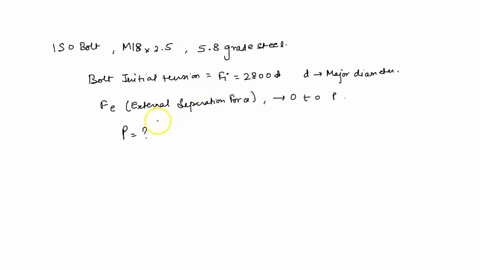 ISO Bolt, M18 x 2.5, 5.8 grade steel.
Bolt Initial tension = Fi = 2800d d → Major diameter.
Fe (External Seperation Force), → 0 to P.
P = ?